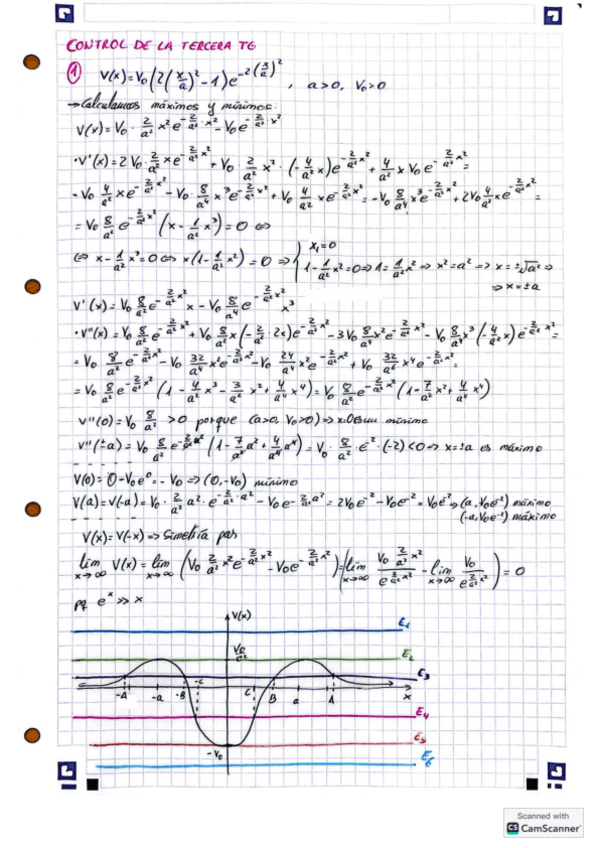 CONTROL DE LA TERCERA TG
① V(x)=V₀(2(x/a)²-1)e^(-2(x/a)²), a>0, V₀>0
→ Calculamos máximos y mínimos:
V(x)=V₀·2/a² x²e^(-2/a²·x²)-V₀e^(-2/a²·x²)
·V'(x)=2V₀·2/a² xe^(-2/a² x²)+V₀ 2/a² x²·(-4/a² x)e^(-2/a² x²)+4/a² xV₀e^(-2/a² x²)=
=V₀ 4/a² xe^(-2/a² x²)-V₀·8/a⁴ x³e^(-2/a² x²)+V₀ 4/a² xe^(-2/a² x²)=-V₀ 8/a⁴ x³e^(-2/a² x²)+2V₀ 4/a² xe^(-2/a² x²)=
=V₀ 8/a² e^(-2/a² x²)(x-1/a² x³)=0 ⇔
⇔ x-1/a² x³=0 ⇔ x(1-1/a² x²)=0 ⇒ { x₁=0
1-1/a² x²=0 ⇒ 1=1/a² x² ⇒ x²=a² ⇒ x=±√a² ⇒
⇒ x=±a
V'(x)=V₀ 8/a² e^(-2/a² x²) x-V₀ 8/a⁴ e^(-2/a² x²) x³
·V''(x)=V₀ 8/a² e^(-2/a² x²)+V₀ 8/a² x(-2/a²·2x)e^(-2/a² x²)-3V₀ 8/a⁴ x²e^(-2/a² x²)-V₀ 8/a⁴ x³(-4/a² x)e^(-2/a² x²)=
=V₀ 8/a² e^(-2/a² x²)-V₀ 32/a⁴ x²e^(-2/a² x²)-V₀ 24/a⁴ x²e^(-2/a² x²)+V₀ 32/a⁶ x⁴e^(-2/a² x²)=
=V₀ 8/a² e^(-2/a² x²)(1-4/a² x²-3/a² x²+4/a⁴ x⁴)=V₀ 8/a² e^(-2/a² x²)(1-7/a² x²+4/a⁴ x⁴)
V''(0)=V₀ 8/a² >0 porque (a>0, V₀>0) ⇒ x=0 es un mínimo
V''(±a)=V₀ 8/a² e^(-2/a² a²)(1-7/a² a²+4/a⁴ a⁴)=V₀·8/a²·e⁻²·(-2)<0 ⇒ x=±a es máximo
V(0)=0-V₀e⁰=-V₀ ⇒ (0,-V₀) mínimo
V(a)=V(-a)=V₀·2/a² a²·e^(-2/a²·a²)-V₀e^(-2/a² a²)=2V₀e⁻²-V₀e⁻²=V₀e⁻² ⇒ (a,V₀e⁻²) máximo
(-a,V₀e⁻²) máximo
V(x)=V(-x) ⇒ Simetría par
lim x→∞ V(x)=lim x→∞ (V₀ 2/a² x²e^(-2/a² x²)-V₀e^(-2/a² x²))=(lim x→∞ V₀ 2/a² x²/e^(2/a² x²)-lim x→∞ V₀/e^(2/a² x²))=0
pq eˣ >> x
V(x)
E₁
V₀/e²
E₂
E₃
-A -a -B -C C B a A x
E₄
E₅
-V₀
E₆
Scanned with
CS CamScanner